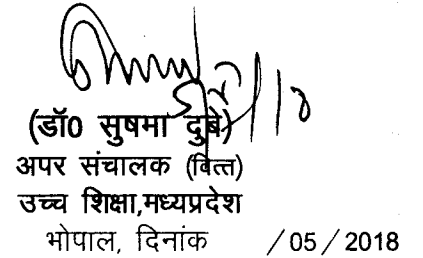 (डॉ0 सुषमा दुबे)
अपर संचालक (वित्त)
उच्च शिक्षा,मध्यप्रदेश
भोपाल, दिनांक / 05 / 2018